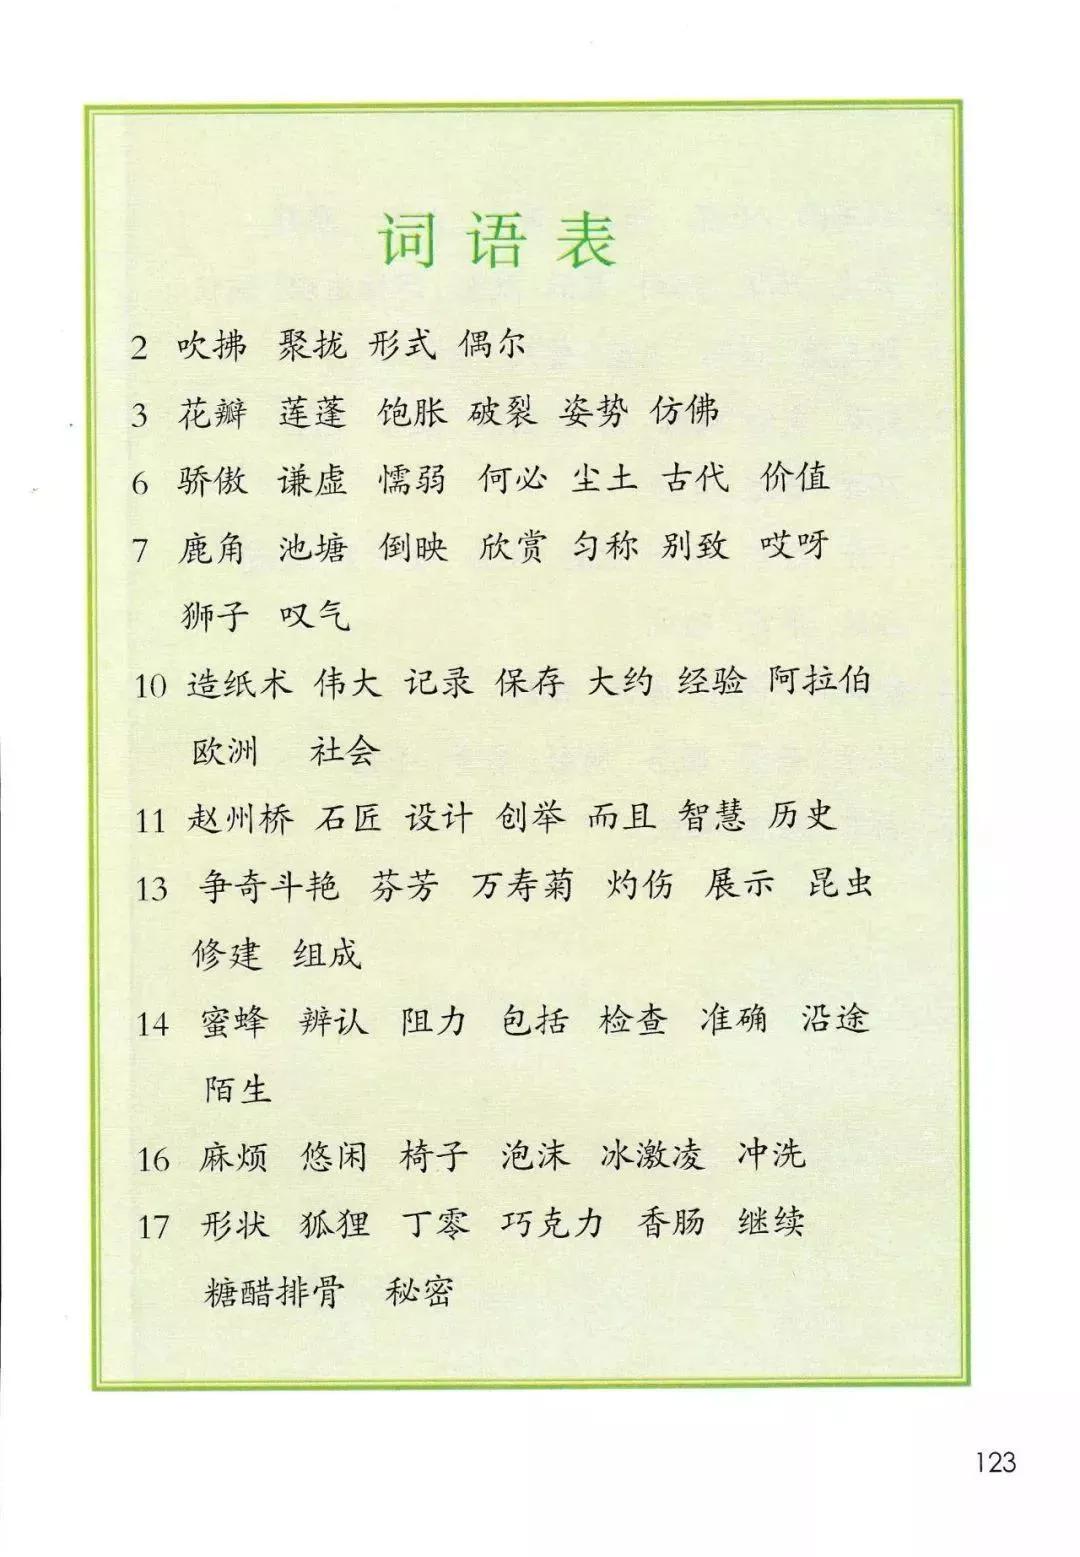 词语表
2 吹拂 聚拢 形式 偶尔
3 花瓣 莲蓬 饱胀 破裂 姿势 仿佛
6 骄傲 谦虚 懦弱 何必 尘土 古代 价值
7 鹿角 池塘 倒映 欣赏 匀称 别致 哎呀
狮子 叹气
10 造纸术 伟大 记录 保存 大约 经验 阿拉伯
欧洲 社会
11 赵州桥 石匠 设计 创举 而且 智慧 历史
13 争奇斗艳 芬芳 万寿菊 灼伤 展示 昆虫
修建 组成
14 蜜蜂 辨认 阻力 包括 检查 准确 沿途
陌生
16 麻烦 悠闲 椅子 泡沫 冰激凌 冲洗
17 形状 狐狸 丁零 巧克力 香肠 继续
糖醋排骨 秘密
123